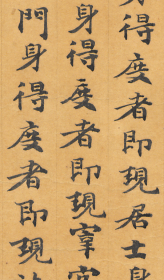 身得度者即現居士身
身得度者即現宰官
門身得度者即現